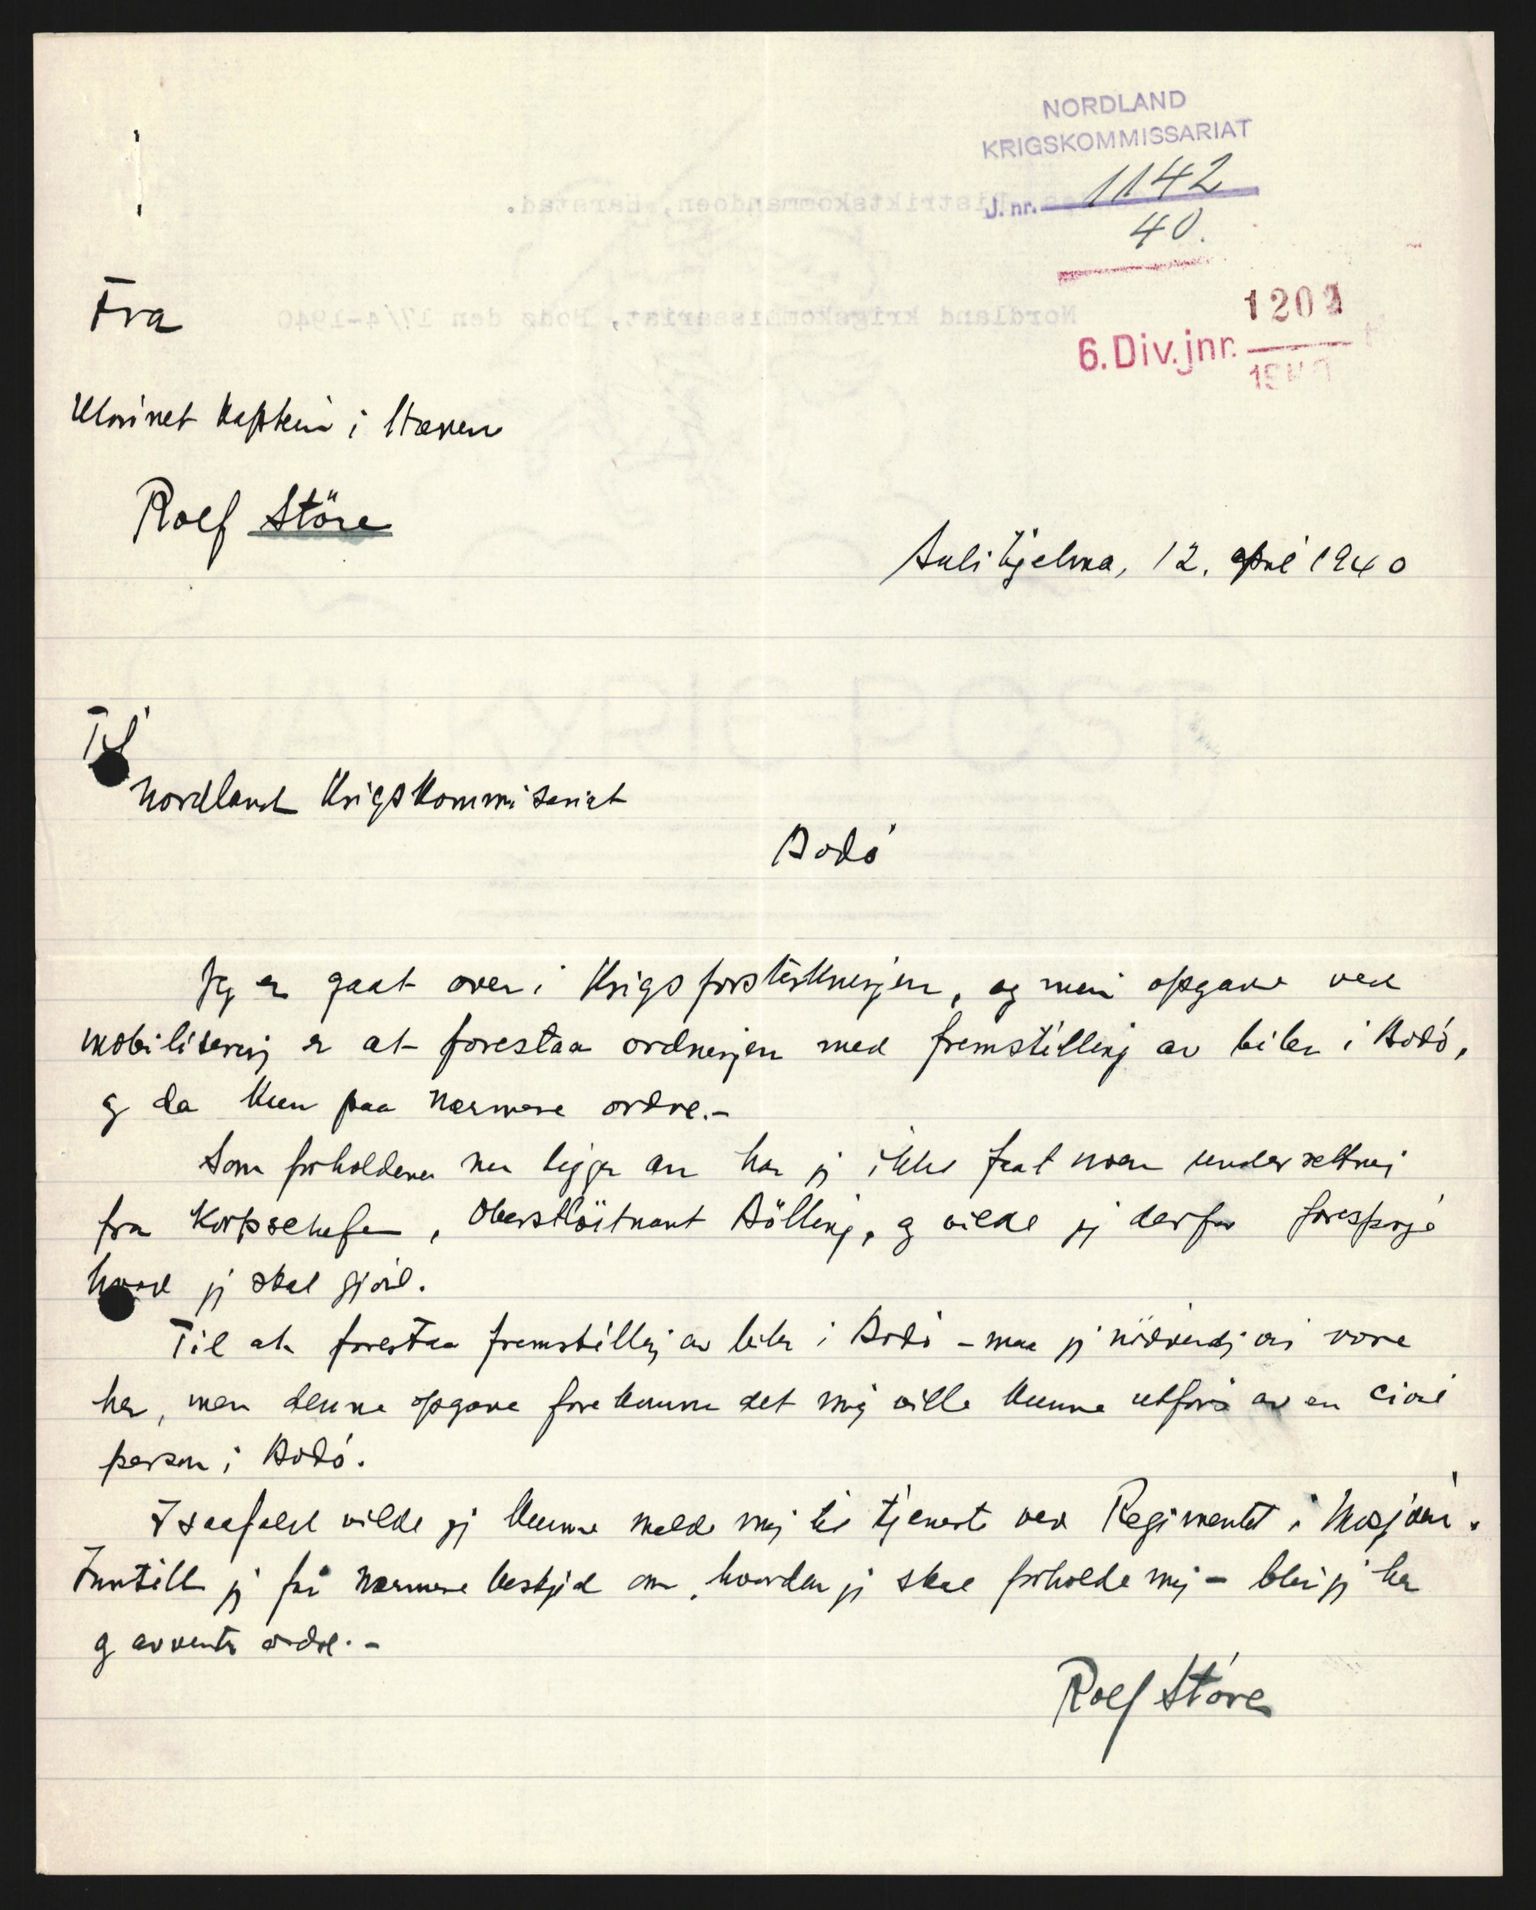 NORDLAND
KRIGSKOMMISSARIAT
J. nr. 1142
40.
1202
6. Div. jnr.
Fra
Kaptein i Hæren
Rolf Störe
Sulitjelma, 12. april 1940
Til
Nordland Krigskommisariat
Bodö
Jeg er gaat over i Krigsforsterkningen, og min opgave ved
mobilisering er at forestaa ordningen med fremstilling av biler i Bodö,
og da kun paa nærmere ordre.-
Som forholdene nu ligger an har jeg ikke faat noen underretning
fra Korpschefen, Oberstlöitnant Bölling, og vilde jeg derfor forespørge
hvad jeg skal gjöre.
Til at forestaa fremstilling av biler i Bodö - maa jeg nödvendigvis være
her, men denne opgave forekommer det mig ville kunne utföres av en civil
person i Bodö.
Isaafald vilde jeg kunne melde mig til tjeneste ved Regimentet i Mosjöen.
Inntill jeg får nærmere beskjed om, hvordan jeg skal forholde mig - blir jeg her
og avventer ordre.-
Rolf Störe